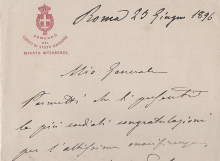 Roma 23 Giugno 1896
COMANDO
DEL
CORPO DI STATO MAGGIORE
REPARTO INTENDENZA
Mio Generale
Permetti che ti presenti
le più cordiali congratulazioni
per l'altissima